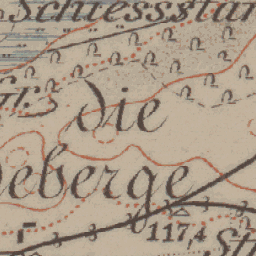 Schiessstan
gr.
die
eberge
r
117,4
Str